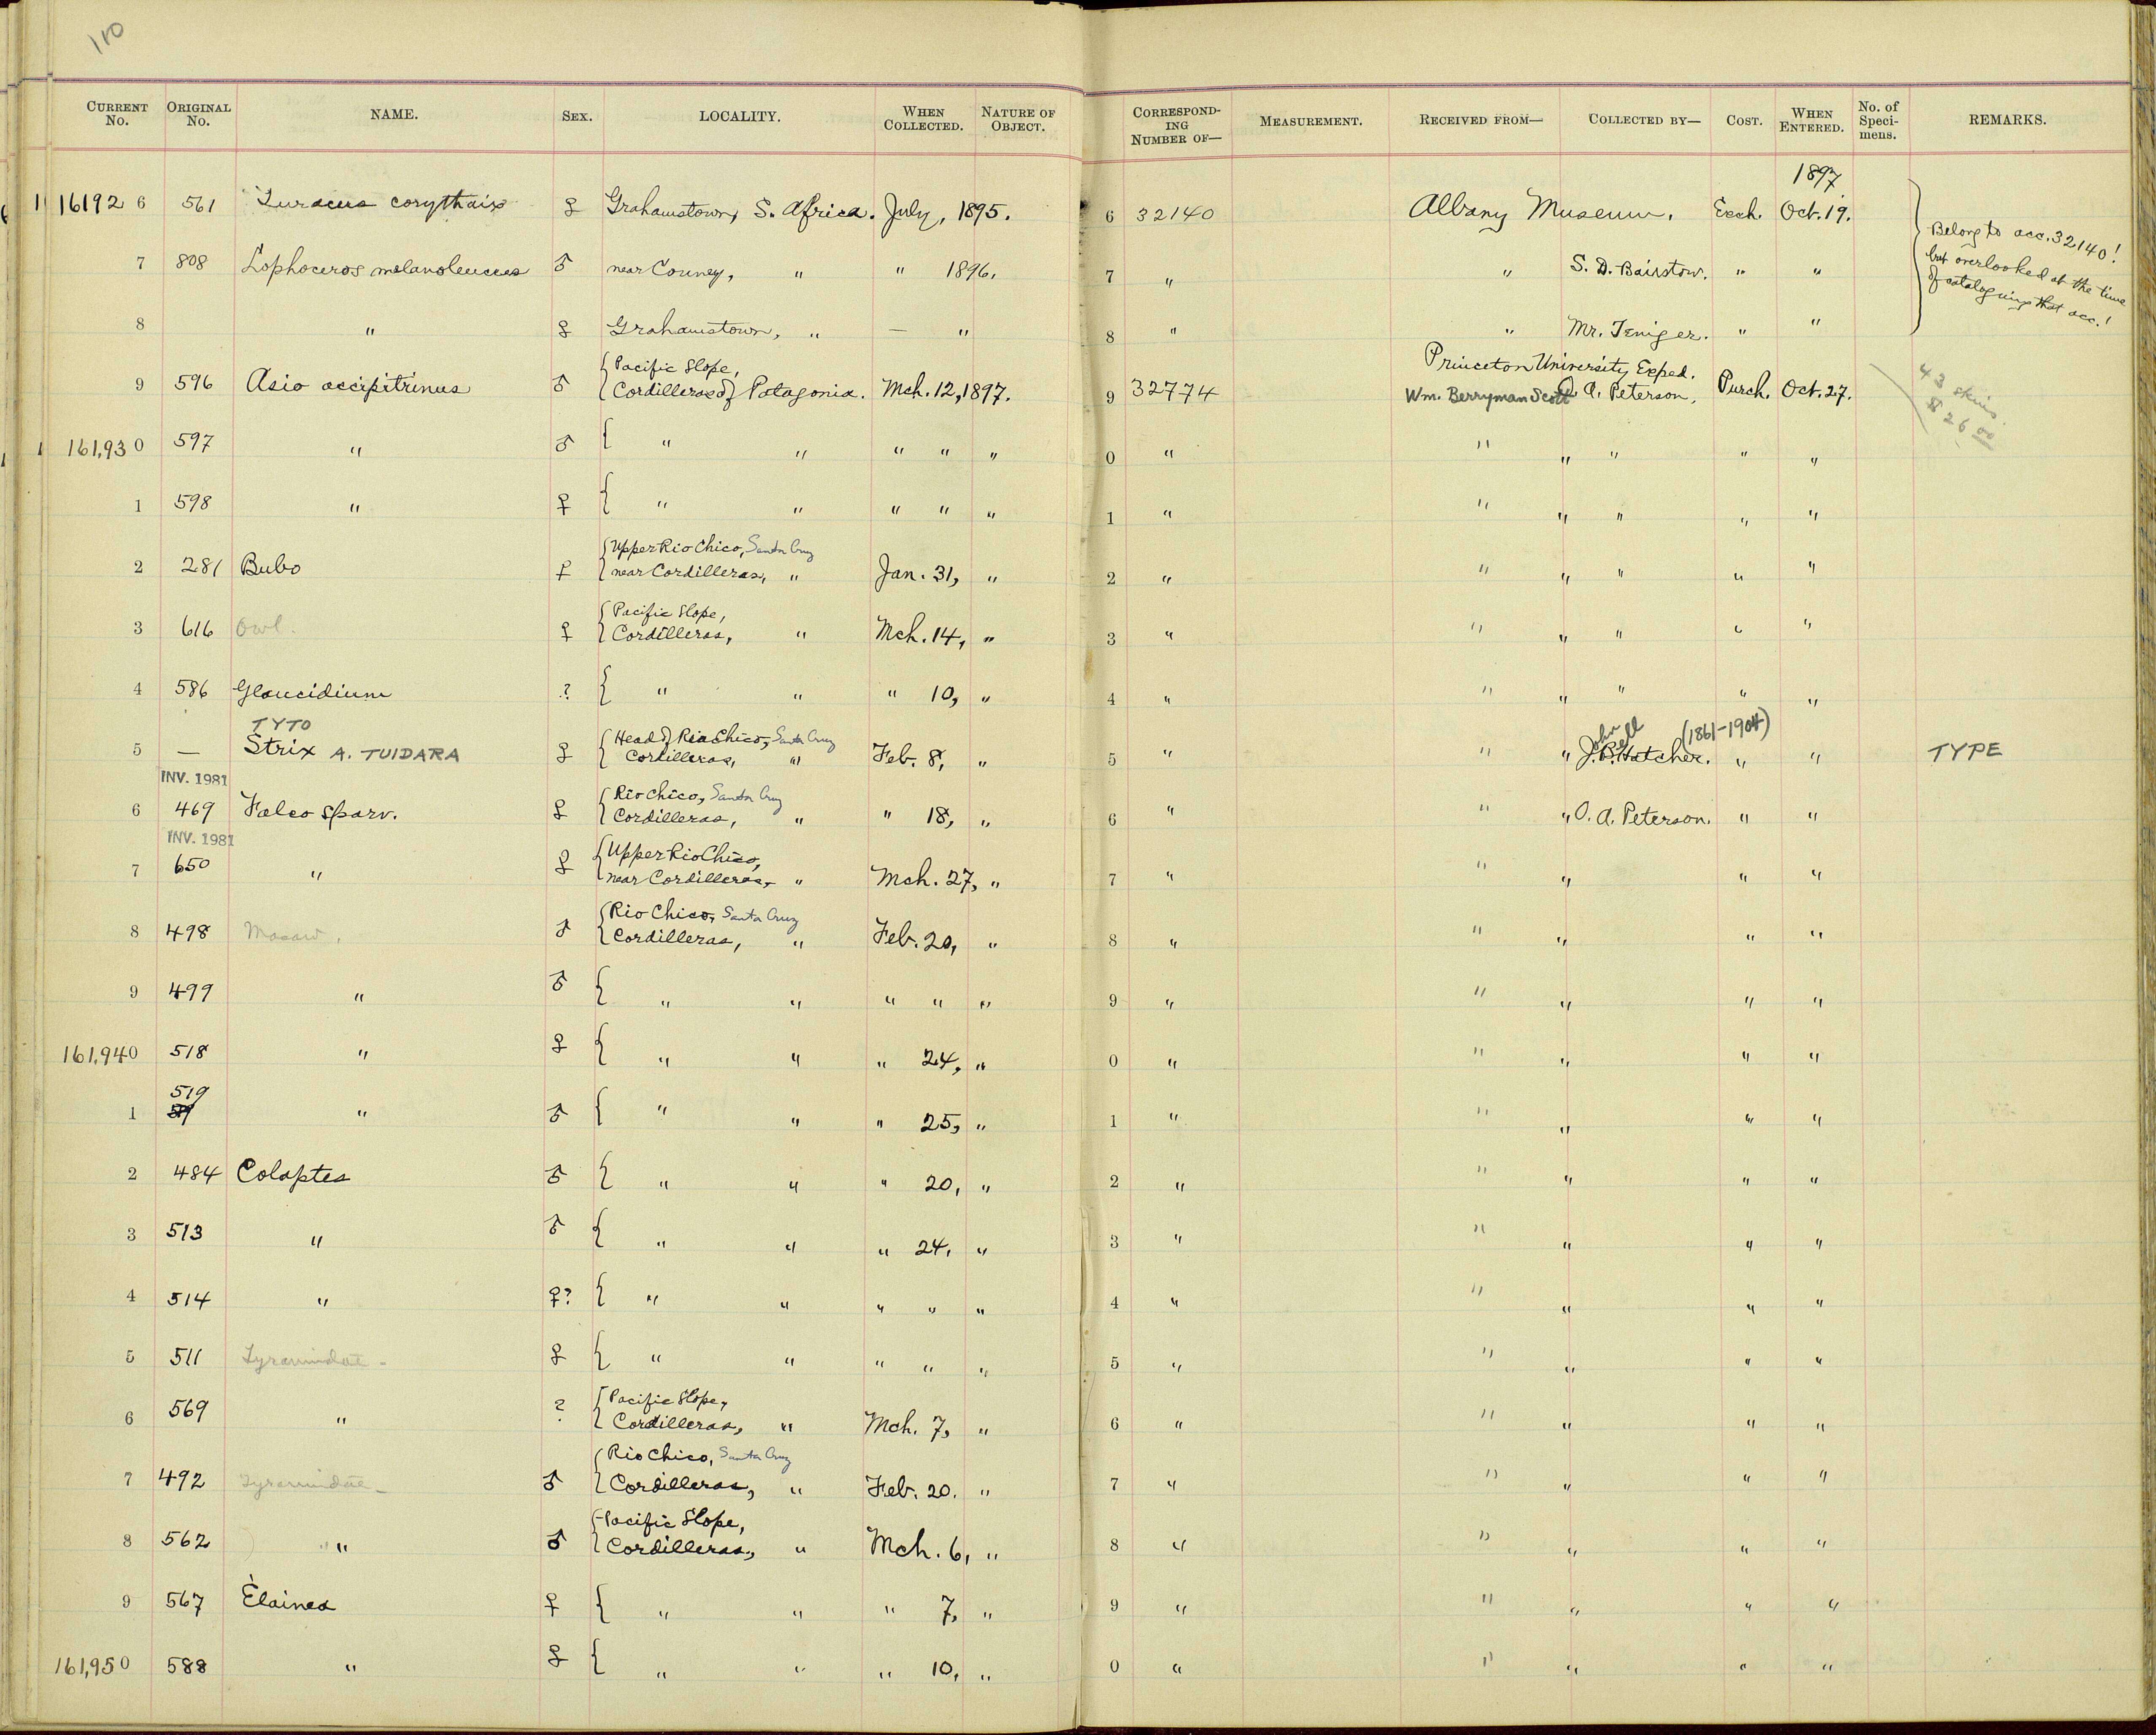 110
CURRENT No. ORIGINAL No. NAME. SEX. LOCALITY. WHEN COLLECTED. NATURE OF OBJECT. CORRESPONDING NUMBER OF— MEASUREMENT. RECEIVED FROM— COLLECTED BY— COST. WHEN ENTERED. No. of Specimens. REMARKS.
1897
16192 6 561 Turacus corythaix ♀ Grahamstown, S. Africa. July, 1895. 6 32140 Albany Museum. Exch. Oct. 19.
Belong to acc. 32140!
but overlooked at the time
of cataloguing that acc.!
7 808 Lophoceros melanoleucus ♂ near Couney, " " 1896. 7 " " S. D. Bairstow. " "
8 " ♀ Grahamstown, " — " 8 " " Mr. Teniger. " "
Pacific Slope, Princeton University Exped.
9 596 Asio accipitrinus ♂ Cordilleras of Patagonia. Mch. 12, 1897. 9 32774 Wm. Berryman Scott O. A. Peterson. Purch. Oct. 27.
43 skins.
$ 26 00
161,93 0 597 " ♂ " " " " " 0 " " " " " "
1 598 " ♀ " " " " " 1 " " " " " "
Upper Rio Chico, Santa Cruz
2 281 Bubo ♀ near Cordilleras, " Jan. 31, " 2 " " " " " "
Pacific Slope,
3 616 Owl. ♀ Cordilleras, " Mch. 14, " 3 " " " " " "
4 586 Glaucidium ? " " " 10, " 4 " " " " " "
TYTO Head of Rio Chico, Santa Cruz John Bell (1861-1904)
5 — Strix A. TUIDARA ♀ Cordilleras, " Feb. 8, " 5 " " " J. B. Hatcher. " " TYPE
INV. 1981 Rio Chico, Santa Cruz
6 469 Falco sparv. ♀ Cordilleras, " " 18, " 6 " " " O. A. Peterson. " "
INV. 1981 Upper Rio Chico,
7 650 " ♀ near Cordilleras, " Mch. 27, " 7 " " " " "
Rio Chico, Santa Cruz
8 498 Macaw, ♂ Cordilleras, " Feb. 20, " 8 " " " " "
9 499 " ♂ " " " " " 9 " " " " "
161,94 0 518 " ♀ " " " 24, " 0 " " " " "
519
1 " ♂ " " " 25, " 1 " " " " "
2 484 Colaptes ♂ " " " 20, " 2 " " " " "
3 513 " ♂ " " " 24, " 3 " " " " "
4 514 " ♀? " " " " " 4 " " " " "
5 511 Tyrannidae - ♀ " " " " " 5 " " " " "
Pacific Slope,
6 569 " ? Cordilleras, " Mch. 7, " 6 " " " " "
Rio Chico, Santa Cruz
7 492 Tyrannidae - ♂ Cordilleras, " Feb. 20. " 7 " " " " "
Pacific Slope,
8 562 " ♂ Cordilleras, " Mch. 6, " 8 " " " " "
9 567 Elainea ♀ " " " 7, " 9 " " " " "
161,95 0 588 " ♀ " " " 10, " 0 " " " " "